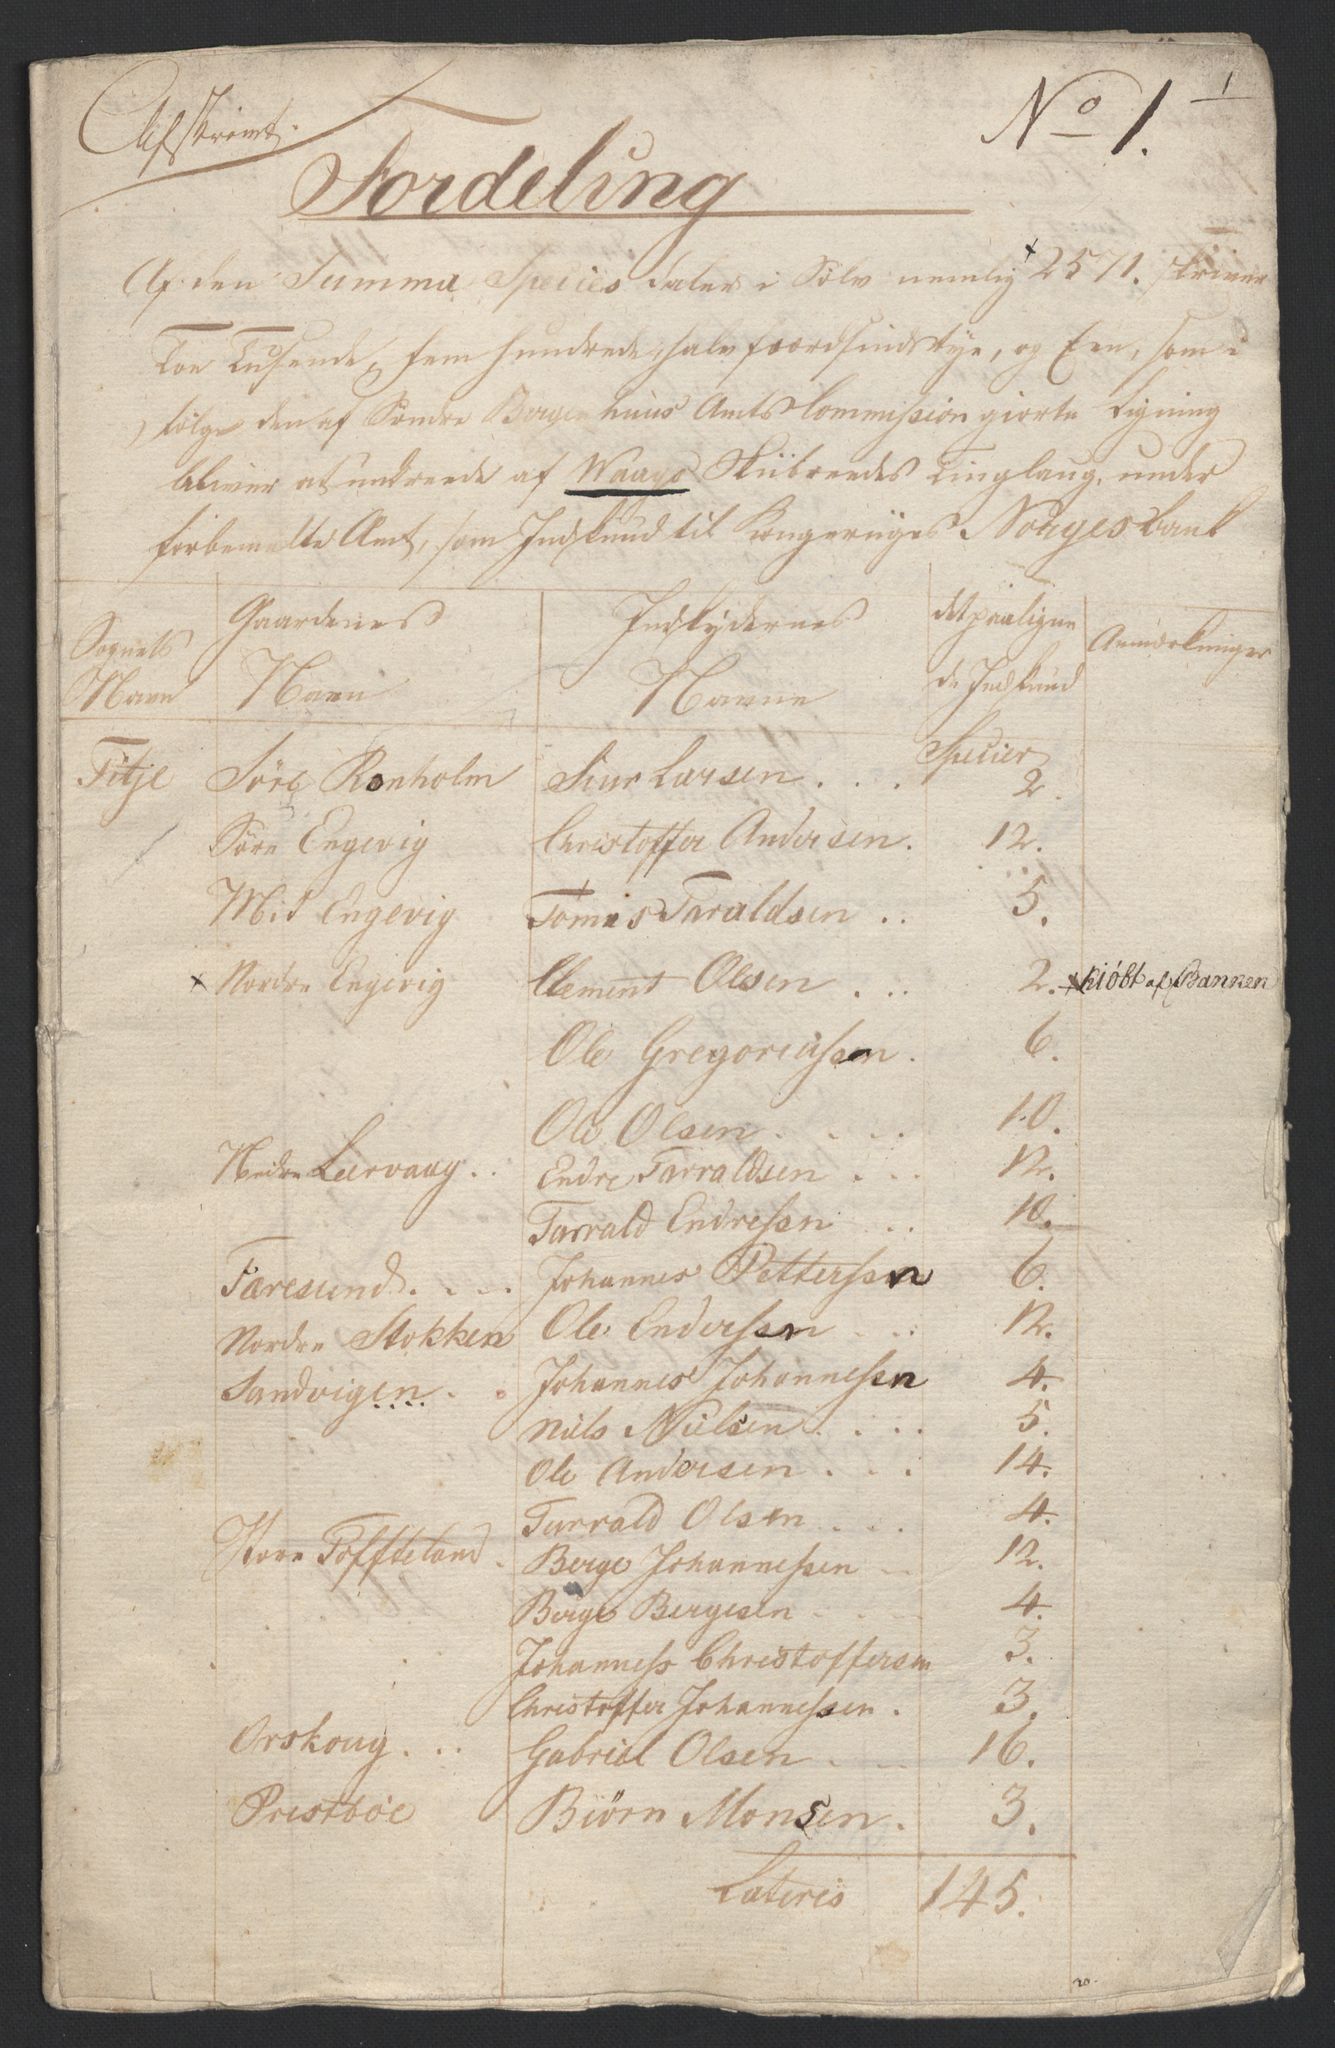 Afskrivt.
No 1.
1
Fordeling
Af den Summa Species daler i Sölv nemlig 2571. skriver
Toe Tusende, fem Hundrede, halvfierdsindstyve, og Een, som i
fölge den af Söndre Bergenhuus Amts Commission giorte Ligning
bliver at untreede af Waags Skibreedes Tinglaug, under
forbemelte Amt, som Indskud til Kongeriiges Norges bank
Sognets Navn | Gaardenes Navn | Indskydernes Navne | det paalignede Indskud | Anmærkninger
Specier
Fitje | Söre Rønholm | Siur Larsen . . . | 2.
Söre Engevig | Christoffer Andersen. | 12.
Mid Engevig | Tomas Taraldsen .. | 5.
x Nordre Engevig | Clement Olsen . .. | 2. | x kiöbt af Banken
Ole Gregoriussen . | 6.
Ole Olsen . . . . | 10.
Nedre Lervaag . . | Endre Tarraldsen . . . | 12.
Tarrald Endressen .. | 10.
Faresund. . . . | Johannes Petterssen | 6.
Nordre Stokken | Ole Enderssen . .. | 12.
Sandvigen . . | Johannes Johannessen | 4.
Niels Nielsen . . . . | 5.
Ole Andersen . . . | 14.
Tarrald Olsen . . . | 4.
Store Toffteland . | Berge Johannessen .. | 12.
Berge Bergesen . . . . | 4.
Johanness Christoffersen | 3.
Christoffer Johannessen . | 3.
Orskoug. . . | Gabriel Olsen . . . | 16.
Prestböe | Biörn Monsen . | 3.
Lateris | 145.
20.